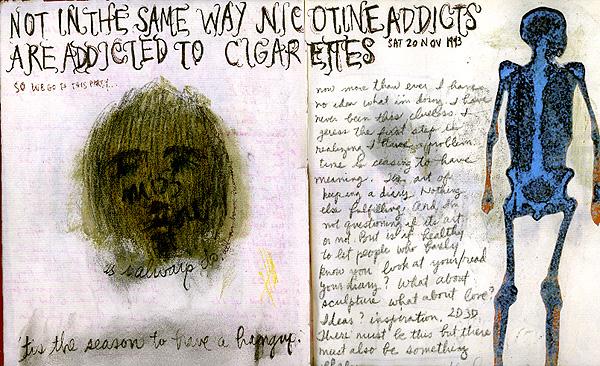 NOT IN THE SAME WAY NICOTINE ADDICTS
ARE ADDICTED TO CIGARETTES SAT 20 NOV 1993
SO WE GO TO THIS PARTY...
'tis the season to have a hangup.
now more than ever I have
no idea what i'm doing. I have
never been this clueless. I
guess the first step is
realizing I have a problem.
time is ceasing to have
meaning. The art of
keeping a diary. Nothing
else fulfilling. And im
not questioning if its art
or not. But is it healthy
to let people who barely
know you look at your/read
your diary? What about
sculpture what about love?
Ideas? inspiration. 2D 3D.
There must be this but there
must also be something